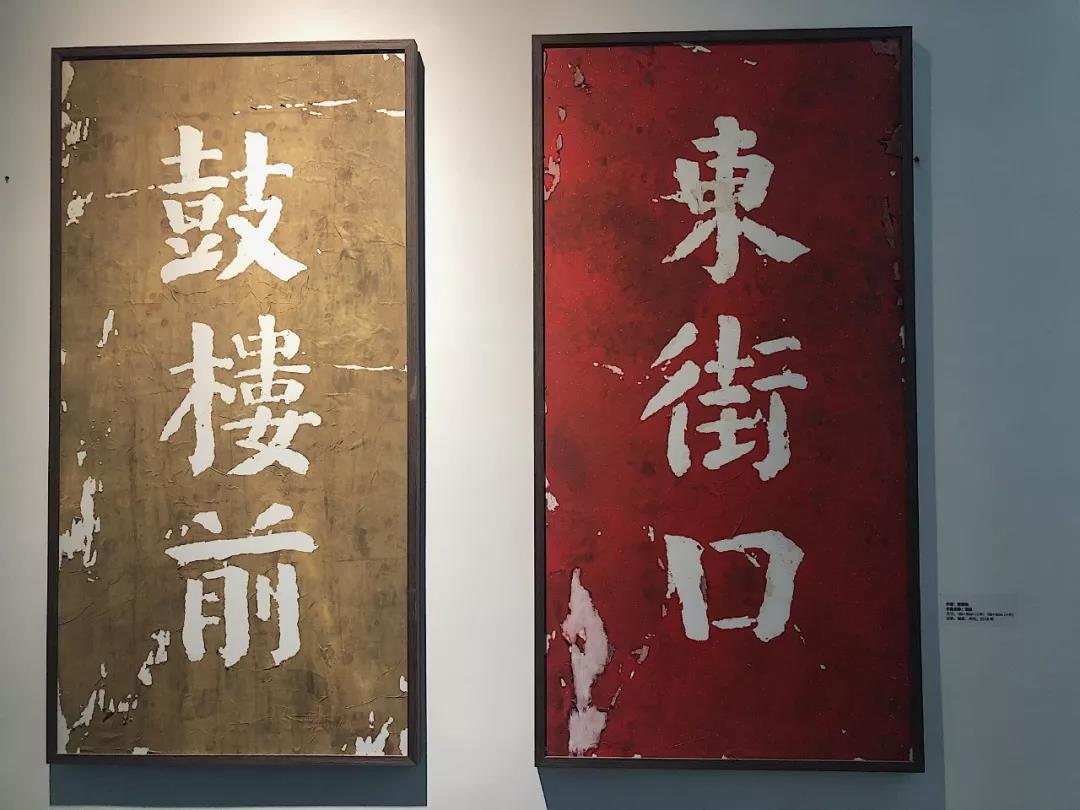 鼓樓前
東街口